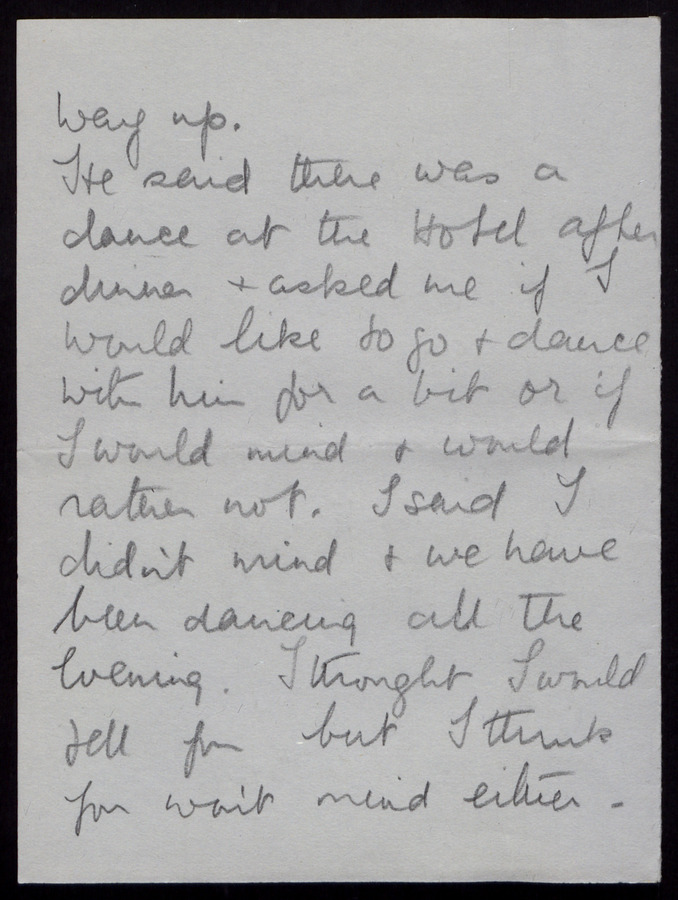 way up.
He said there was a
dance at the Hotel after
dinner + asked me if I
would like to go + dance
with him for a bit or if
I would mind + would
rather not. I said I
didn't mind + we have
been dancing all the
evening. I thought I would
tell you but I think
you won't mind either -